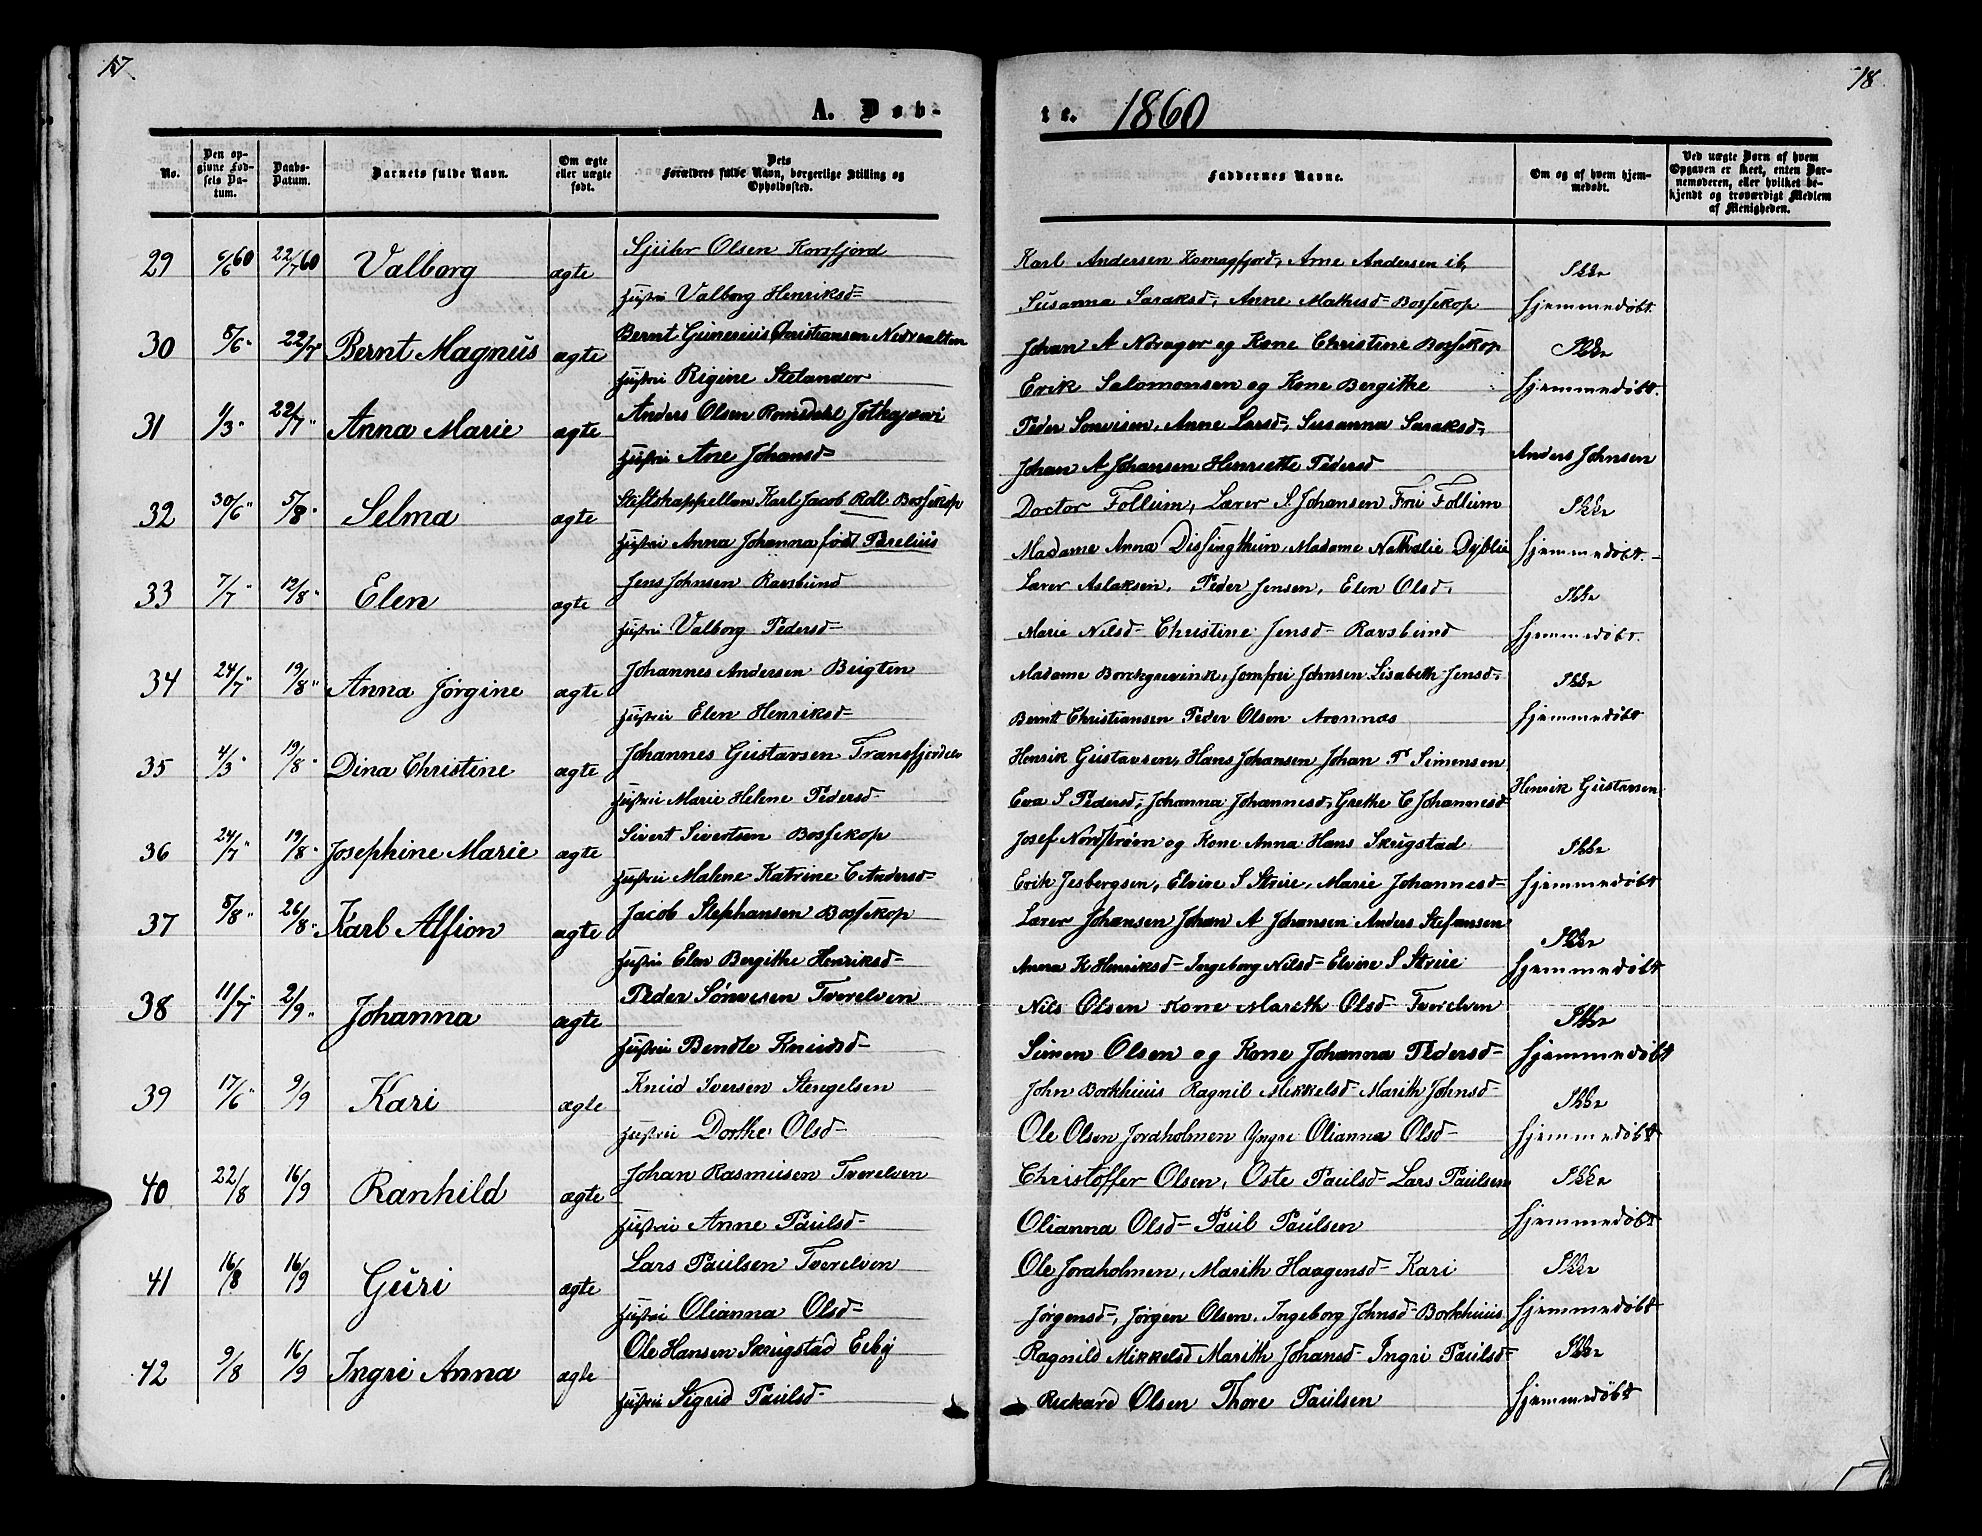 17
18
A. Døb-
te. 1860
No.
Den opgivne Fødsels Datum.
Daabs-Datum.
Barnets fulde Navn.
Om ægte eller uægte født.
Dets Forældres fulde Navn, borgerlige Stilling og Opholdssted.
Faddernes Navne.
Om og af hvem hjemmedøbt.
Ved uægte Børn af hvem Opgaven er skeet, enten Barnemoderen, eller hvilket bekjendt og troværdigt Medlem af Menigheden.
29 6/6 60 22/7 60 Valborg ægte Sjuhr Olsen Korsfjord Karl Andersen Komagfjord, Arne Andersen ib, Ikke
hustru Valborg Henriksd- Susanna Saraksd, Anne Mathisd- Bossekop hjemmedøbt.
30 8/6 " 22/7 " Bernt Magnus ægte Bernt Gunerius Christiansen Nedrealten Johan A Norager og Kone Christine Bossekop Ikke
hustru Rigine Stelander Erik Salomonsen og Kone Bergithe hjemmedøbt.
31 1/3 " 22/7 " Anna Marie ægte Anders Olsen Romsdahl Jotkajavri Peder Sonvisen, Anne Larsd-, Susanna Saraksd-, Anders Johnsen
hustru Ane Johansd- Johan A Johansen Henriette Pedersd
32 30/6 " 5/8 " Selma ægte Stiftskappellan Karl Jacob Roll Bossekop Doctor Follum, Lærer S. Johansen Fru Follum Ikke
hustru Anna Johanna født Parelius Madame Anna Dissingthun, Madame Nathalie Dyblie hjemmedøbt.
33 7/7 " 12/8 " Elen ægte Jens Johnsen Ravsbund Lærer Aslaksen, Peder Jensen, Elen Olsd, Ikke
hustru Valborg Pedersd- Marie Nilsd- Christine Jensd- Ravsbund hjemmedøbt.
34 24/7 " 19/8 " Anna Jørgine ægte Johannes Andersen Bugten Madame Borchgrevink, Jomfru Johnsen Lisabeth Jensd, Ikke
hustru Elen Henriksd- Bernt Christiansen Peder Olsen Aronnæs hjemmedøbt
35 4/3 " 19/8 " Dina Christine ægte Johannes Gustavsen Transfjorddalen Henrik Gustavsen, Hans Johansen Johan P Simensen Henrik Gustavsen
hustru Marie Helene Pedersd- Eva S Pedersd-, Johanna Johannesd-, Grethe C Johannesd
36 24/7 " 19/8 " Josephine Marie ægte Sivert Sivertsen Bossekop Josef Nordstrøm og Kone Anna Hans Skrugstad Ikke
hustru Malene Katrine C Andersd- Erik Jesbergsen, Elvire S Strie, Marie Johannesd- hjemmedøbt
37 8/8 " 26/8 " Karl Alfion ægte Jacob Stephansen Bossekop Lærer Johansen Johan A Johansen Anders Stefansen Ikke
hustru Elen Bergithe Henriksd- Anna K Henriksd- Ingeborg Nilsd- Elvire S Strie hjemmedøbt
38 11/7 " 2/9 " Johanna ægte Peder Sønvesen Tverelven Nils Olsen Kone Marith Olsd- Tverelven Ikke
hustru Bendte Knudsd- Simen Olsen og Kone Johanna Pedersd- hjemmedøbt
39 17/6 " 9/9 Kari ægte Knud Iversen Stengelsen John Borkhuus Ragnil Mikkelsd- Marith Johnsd- Ikke
hustru Dorthe Olsd- Ole Olsen Jordholmen Yngre Olianna Olsd- hjemmedøbt
40 22/8 16/9 Ranhild ægte Johan Rasmusen Tverelven Christoffer Olsen, Oste Paulsd- Lars Paulsen Ikke
hustru Anne Paulsd- Olianna Olsd- Paul Paulsen hjemmedøbt
41 16/8 16/9 Guri ægte Lars Paulsen Tverelven Ole Jordholmen, Marith Haagensd- Kari Ikke
hustru Olianna Olsd- Jørgensd-, Jørgen Olsen. Ingeborg Johnsd- Borkhuus hjemmedøbt
42 9/8 16/9 Ingri Anna ægte Ole Hansen Skrugstad Eiby Ragnild Mikkelsd Marith Johansd- Ingri Paulsd- Ikke
hustru Sigrid Paulsd- Rickard Olsen Thore Paulsen hjemmedøbt